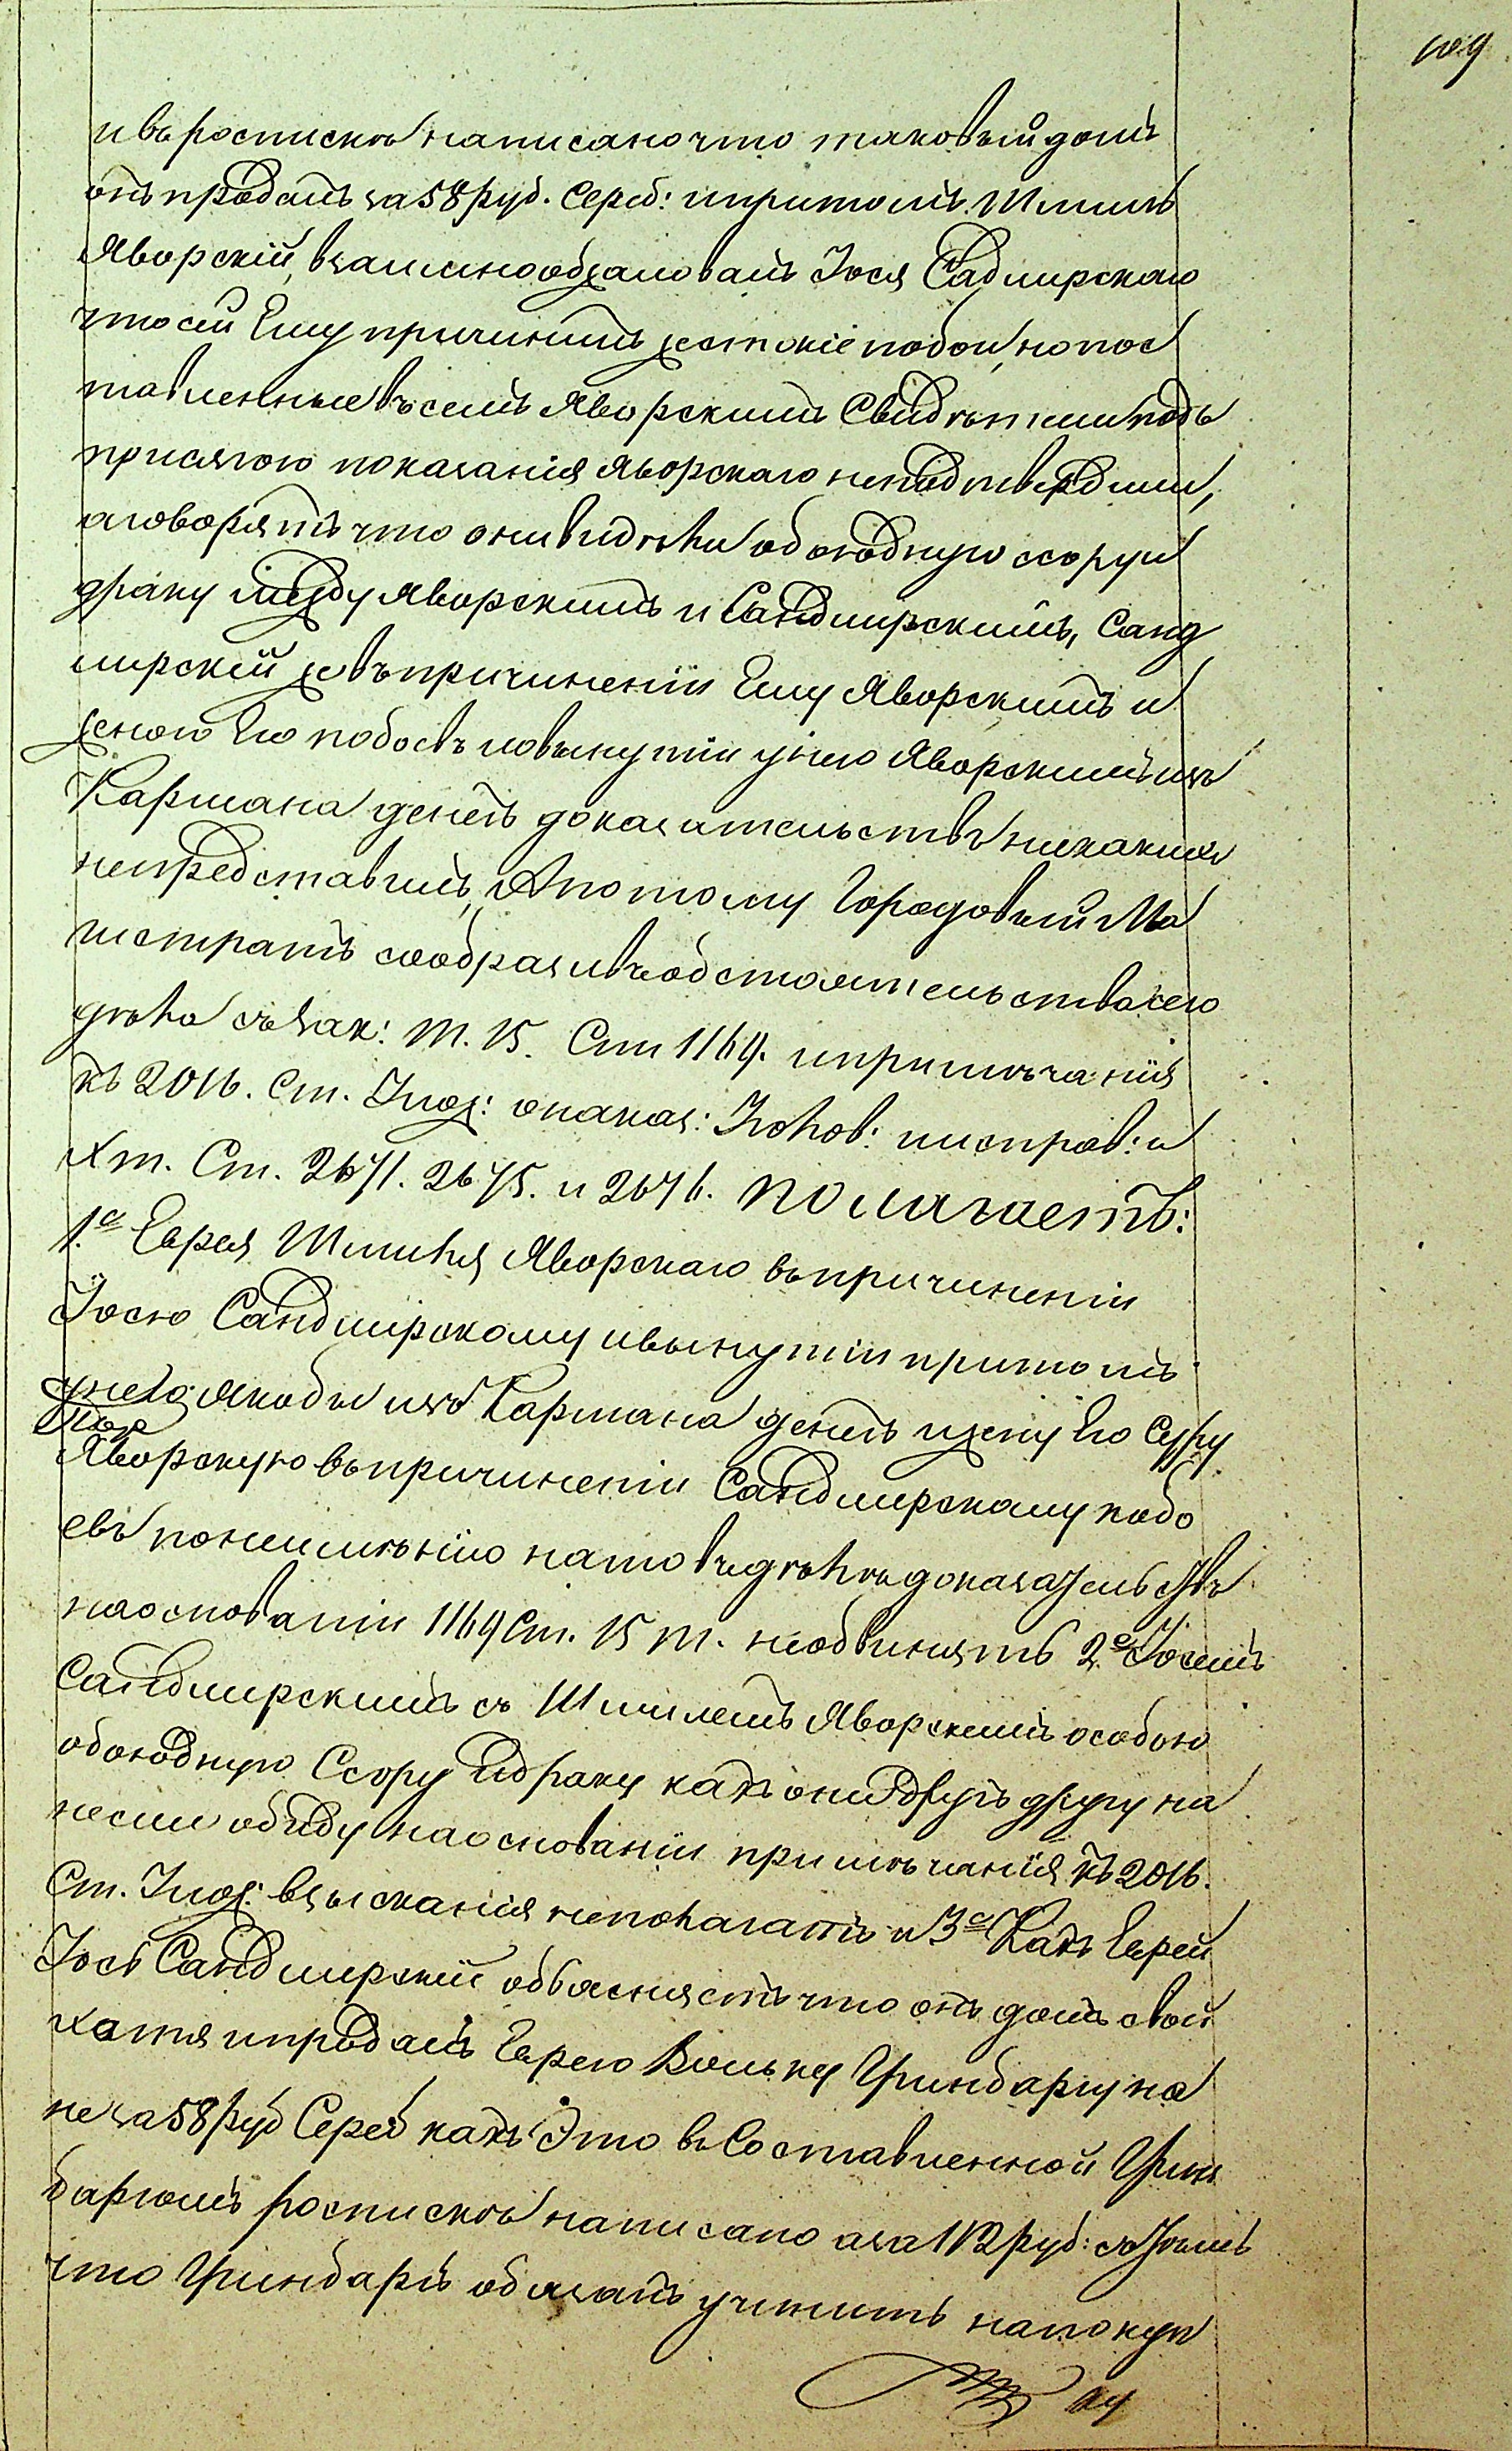 и въ роспискѣ написано что таковый домъ
онъ продалъ за 58 руб. Сереб: и притомъ Шмиль
Яворскій, взаимно обжаловалъ Іося Садмирскаго
что сей Ему причинилъ жестокіе побои, но пос
тавленные въ семъ Яворскимъ Свидѣтели подъ
присягою показанія Яворскаго неподтвердили,
а говорятъ что они видѣли обоюдную ссору и
драку между Яворскимъ и Сандмирскимъ, Санд
мирскій же въ причиненіи Ему Яворскимъ и
женою Его побоевъ и о вынутіи у него Яворскимъ изъ
Кармана денегъ доказательствъ никакихъ
непредставилъ, А потому Городовый Ма
гистратъ сообразивъ обстоятельства сего
дѣла съ Зак: Т. 15. Стт 1169. и примѣчанія
къ 2016. Ст. Улож: о наказ: Уголов: и исправ: и
Х т. Ст. 2671. 2675. и 2676. полагаетъ:
1.е Еврея Шмиля Яворскаго въ причиненіи
Іосю Сандмирскому и вынутіи притомъ
у него якобы изъ Кармана денегъ и жену Его Суру
Яворскую въ причиненіи Сандмирскому побо
евъ по неимѣнію на то въ дѣлѣ доказательствъ
на основаніи 1169 Ст. 15 т. необвинять 2.е Іосемъ
Сандмирскимъ съ Шмилемъ Яворскимъ особою
обоюдную Ссору и драку какъ они другъ другу на
несли обиду на основаніи примѣчанія къ 2016.
Ст. Улож: взысканія неполагать и 3е Какъ Еврей
Іось Сандмирскій объясняетъ что онъ домъ свой
хотя и продалъ Еврею Вольку Гринбаргу но
не за 58 руб Сереб какъ Это въ Составленной Грин
баргомъ роспискѣ написано а за 112 руб: съ тѣмъ
что Гринбаргъ обязанъ учинить на покуп